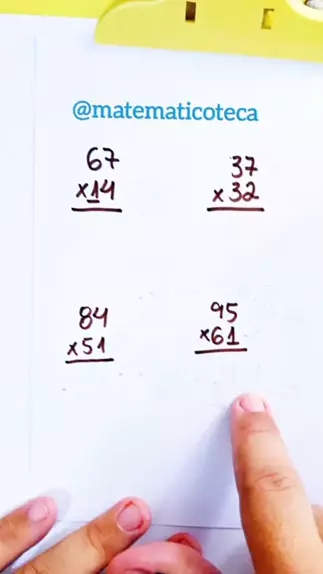 @matematicoteca
67
x14
37
x32
84
x51
95
x61